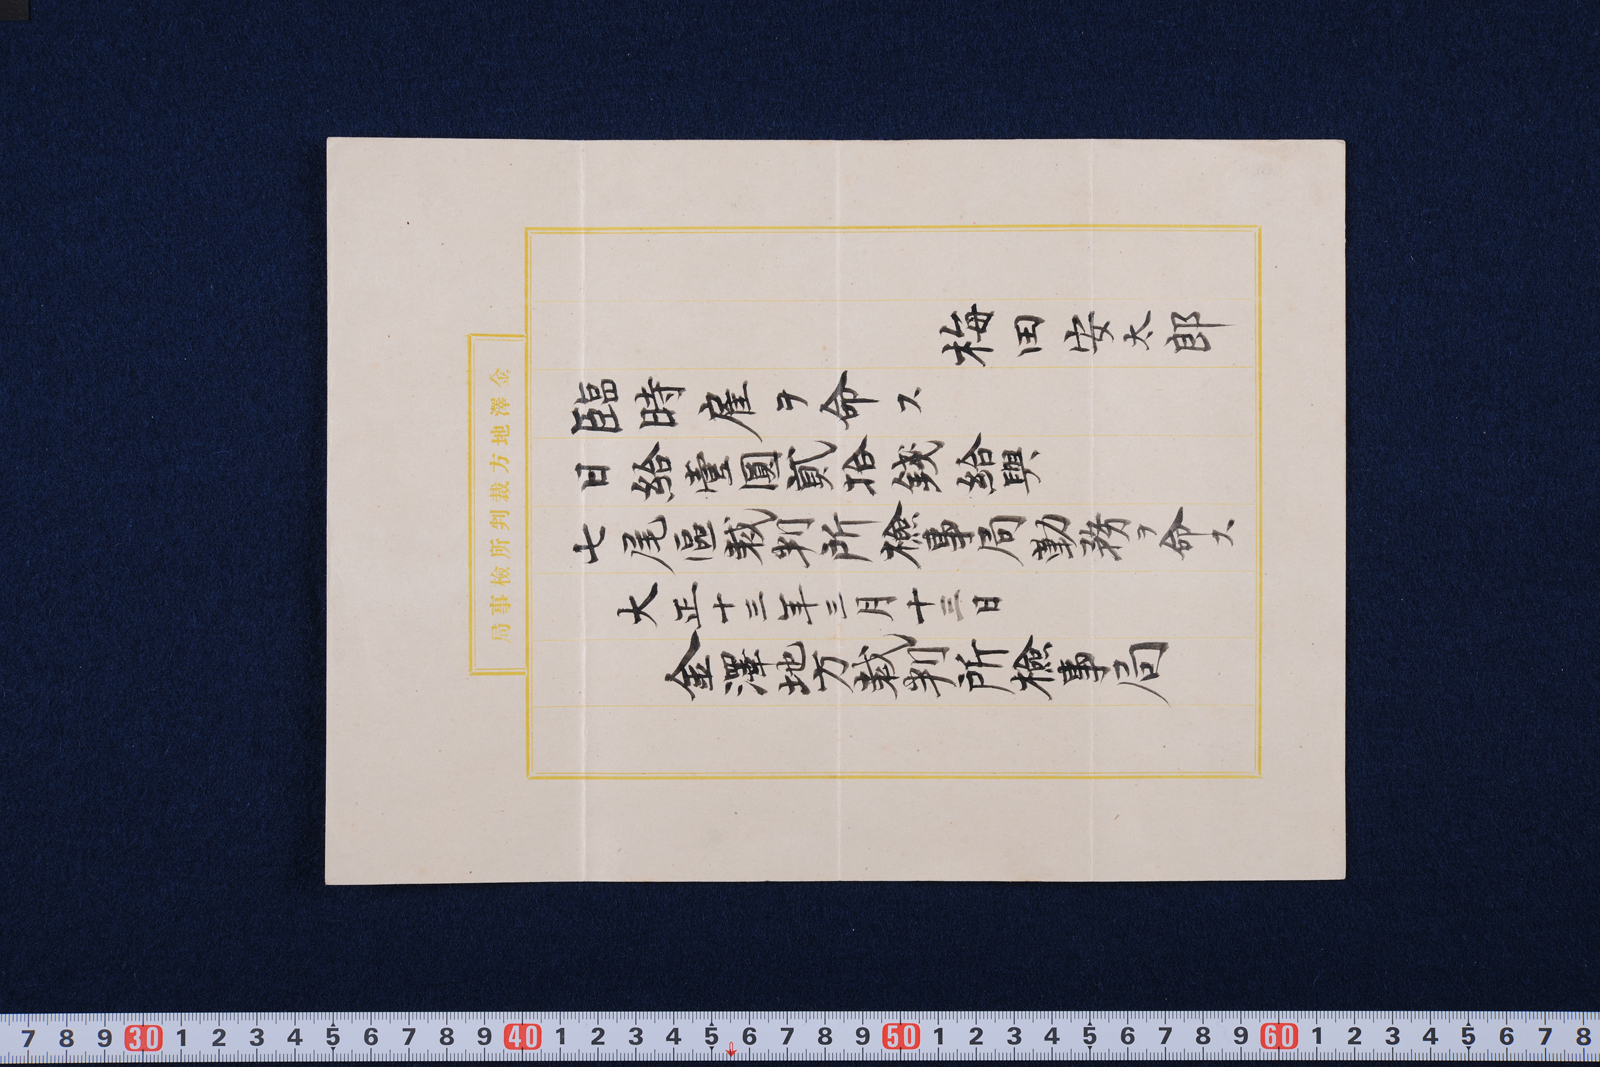 梅田安太郎
臨時雇ヲ命ス
日給壹圓貳拾錢給與
七尾區裁判所檢事局勤務ヲ命ス
大正十三年三月十三日
金澤地方裁判所檢事局
金澤地方裁判所檢事局
7 8 9 30 1 2 3 4 5 6 7 8 9 40 1 2 3 4 5 6 7 8 9 50 1 2 3 4 5 6 7 8 9 60 1 2 3 4 5 6 7 8